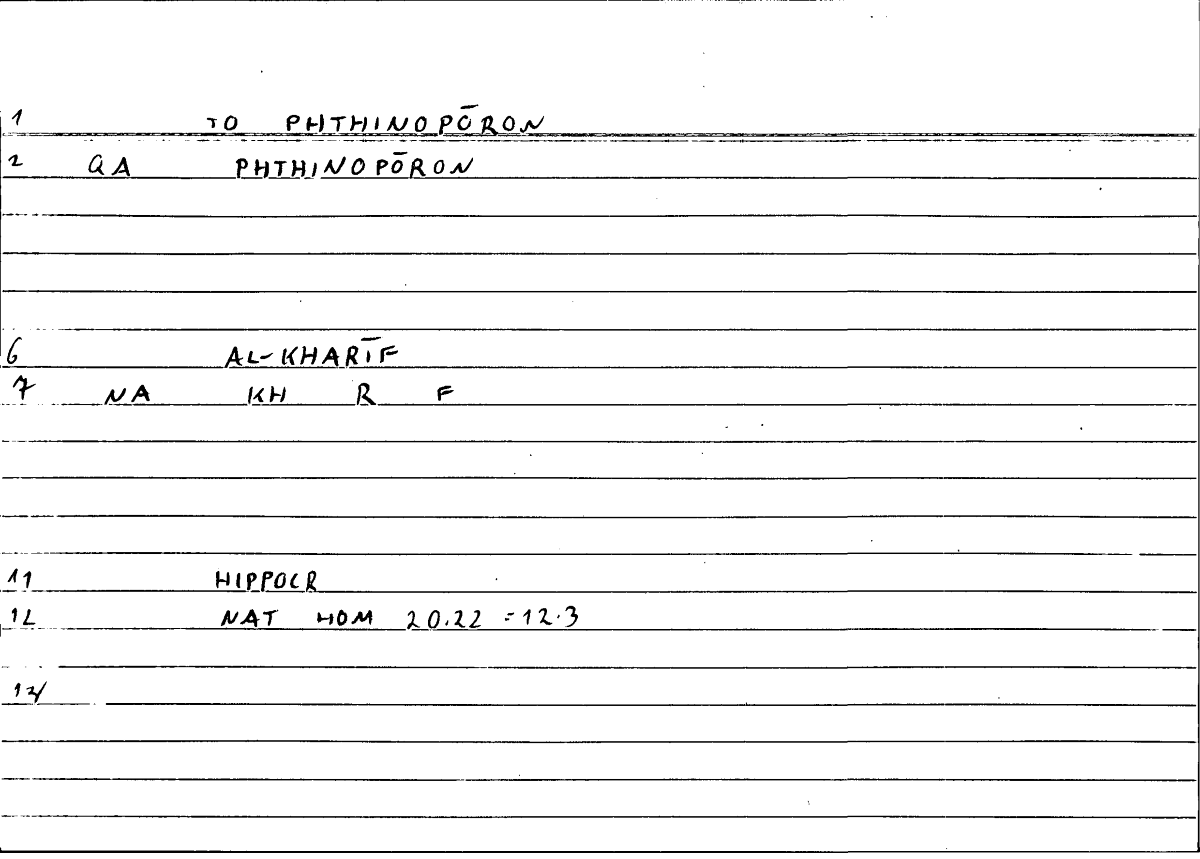 1 TO PHTHINOPŌRON
2 QA PHTHINOPŌRON
6 AL-KHARĪF
7 NA KH R F
11 HIPPOCR
12 NAT HOM 20.22 = 12.3